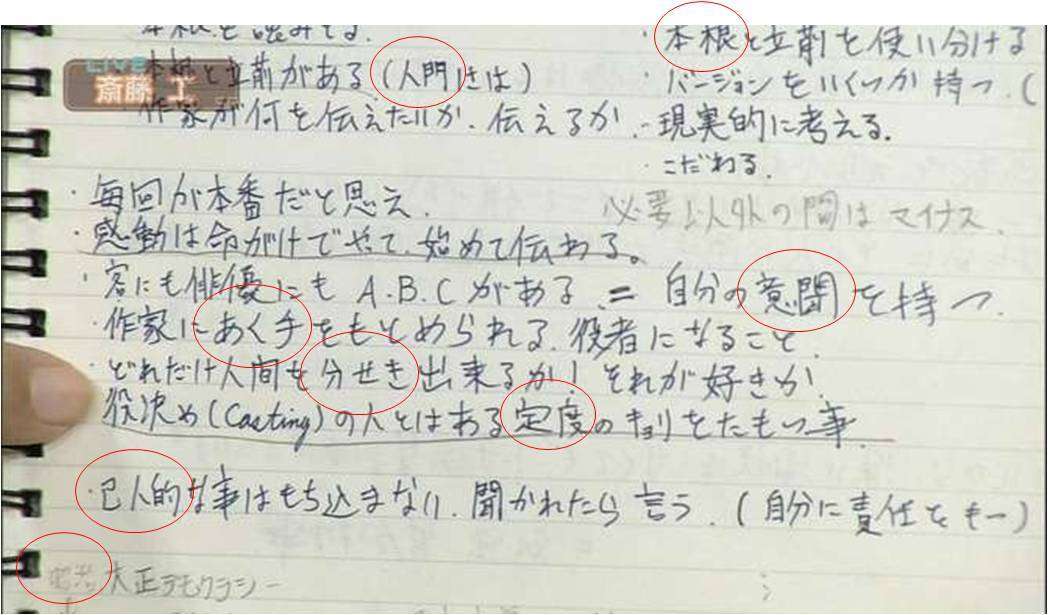 ・本根と立前を使い分ける
LIVE
斎藤 工
本根と立前がある(人門には)
・バージョンをいくつか持つ.(
作家が何を伝えたいか.伝えるか.
・現実的に考える.
・こだわる.
・毎回が本番だと思え.
必要以外の間はマイナス.
・感動は命がけでやて、始めて伝わる。
・客にも俳優にも A.B.Cがある = 自分の意聞を持つ.
・作家にあく手をもとめられる.役者になること.
・どれだけ人間を分せき出来るか!それが好きか!
役決め(Casting)の人とはある定度のキョリをたもつ事.
・已人的な事はもち込まない.聞かれたら言う.(自分に責任をもー)
大正デモクラシー